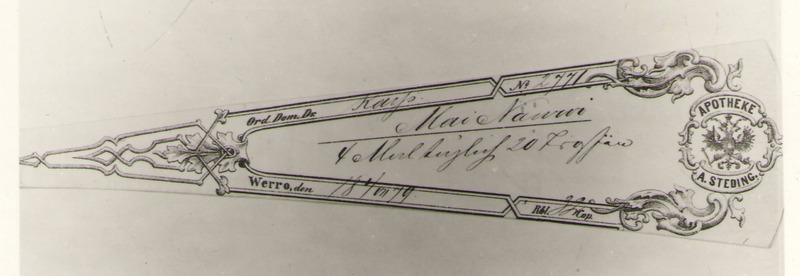 Ord. Dom. Dr. Karp
No 2771
Mai Nauwi
4 Mal täglich 20 Tropfen
Werro, den 18 4/IV 79
Rbl. Kop.
APOTHEKE
A. STEDING.